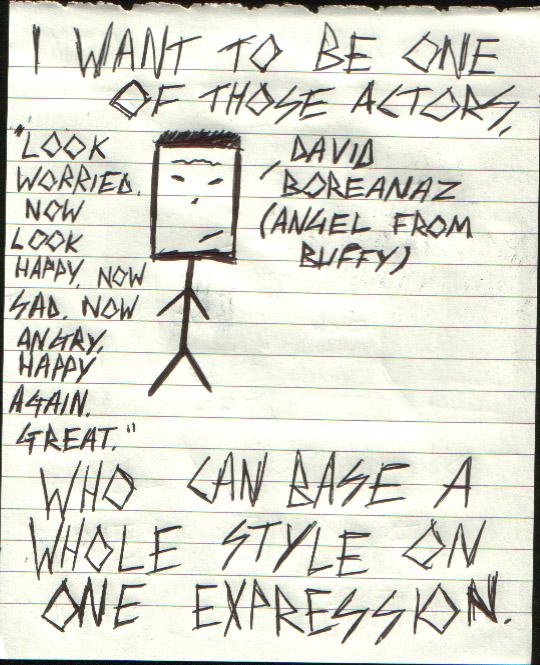 I WANT TO BE ONE
OF THOSE ACTORS,
"LOOK
WORRIED.
NOW
LOOK
HAPPY. NOW
SAD. NOW
ANGRY.
HAPPY
AGAIN.
GREAT."
DAVID
BOREANAZ
(ANGEL FROM
BUFFY)
WHO CAN BASE A
WHOLE STYLE ON
ONE EXPRESSION.